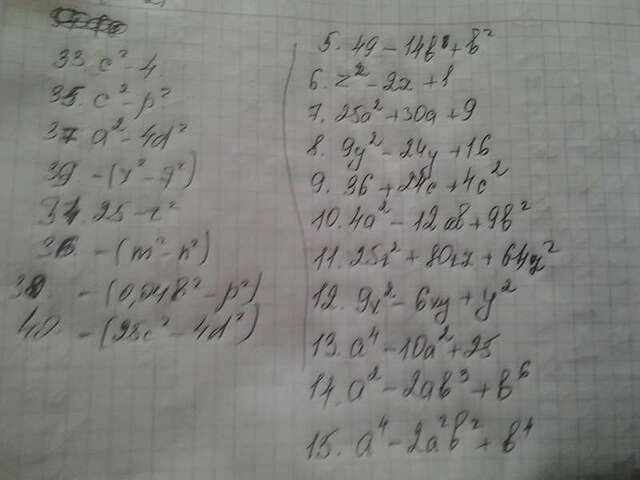 33. c² - 4
35. c² - p²
37 a² - 4d²
39 - (x² - 7²)
34. 25 - z²
36. - (m² - n²)
38 - (0,04b² - p²)
40. - (25c² - 4d²)
5. 49 - 14b + b²
6. z² - 2z + 1
7. 25a² + 30a + 9
8. 9y² - 24y + 16
9. 36 + 24c + 4c²
10. 4a² - 12ab + 9b²
12. 9x² - 6xy + y²
13. a⁴ - 10a² + 25
14. a² - 2ab³ + b⁶
15. a⁴ - 2a²b² + b⁴